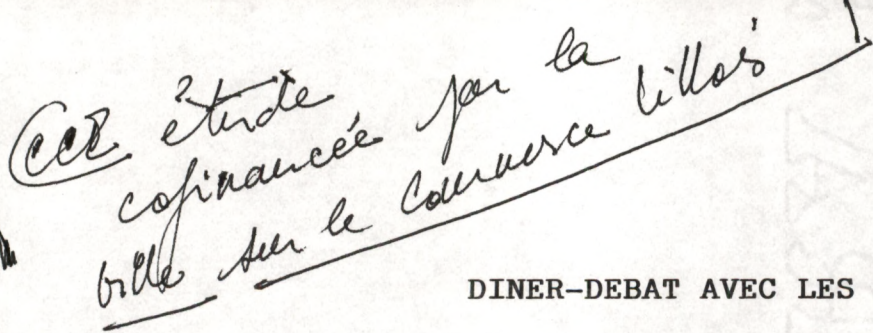 étude
cofinancée par la
ville sur le commerce lillois
DINER-DEBAT AVEC LES